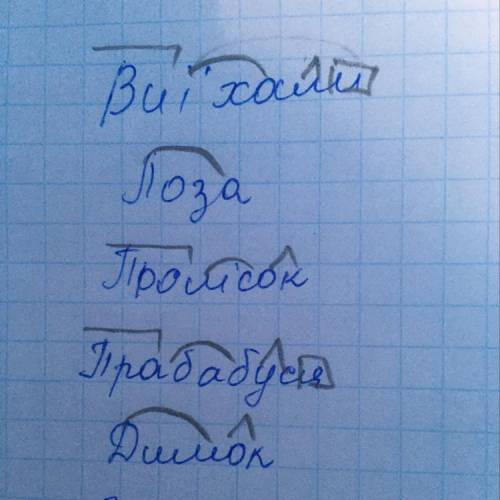 Виїхали
Лоза
Пролісок
Прабабуся
Димок